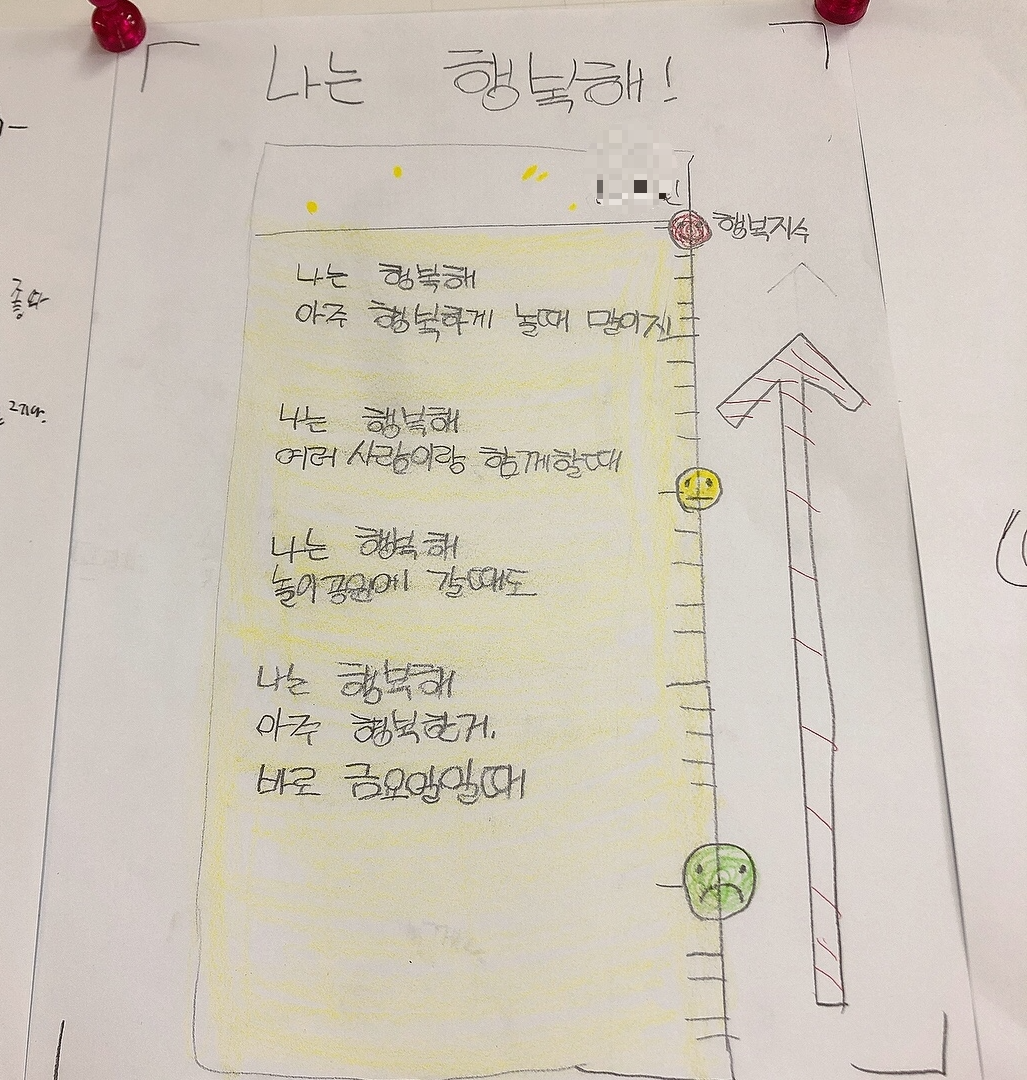 나는 행복해!
행복지수
나는 행복해
아주 행복하게 놀때 말이지
나는 행복해
여러 사람이랑 함께할때
나는 행복해
놀이공원에 갈때도
나는 행복해
아주 행복한거.
바로 금요일일때
좋다